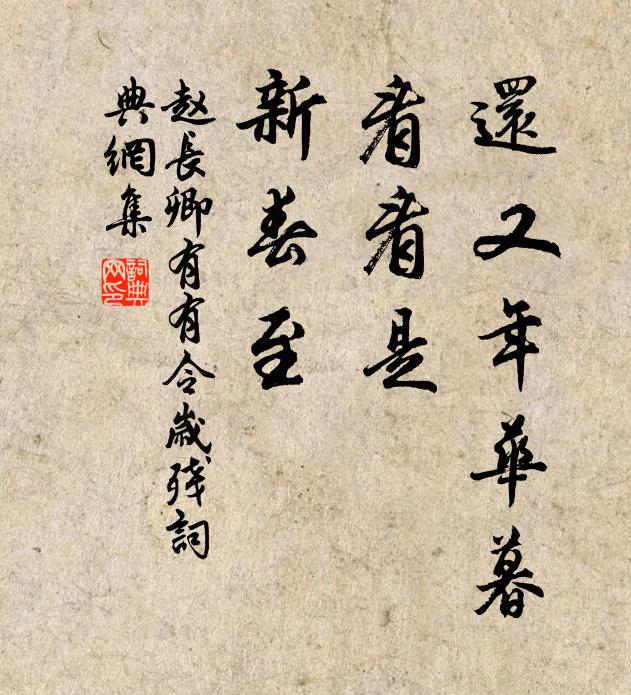 還又年華暮
看看是
新春至
赵長卿有有令歲残詞
典網集
詞典
网印